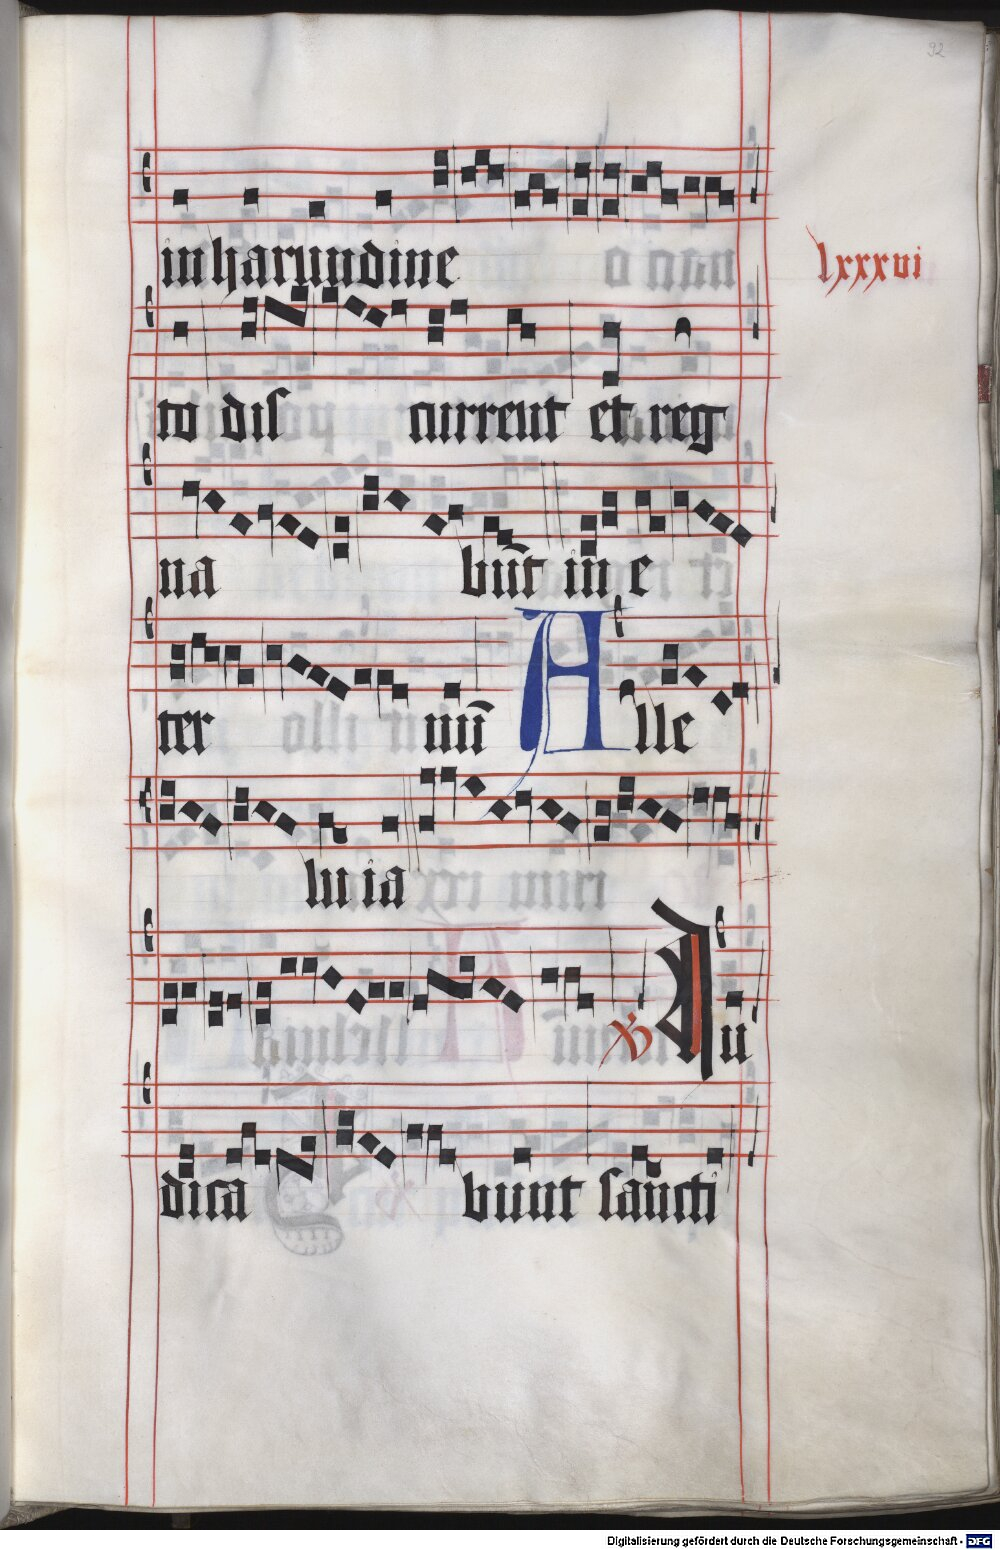 92
in harundine
lxxxvi
to dis current et reg
na būt in e
ter nū Alle
luia
℣ Iu
dica bunt sancti
Digitalisierung gefördert durch die Deutsche Forschungsgemeinschaft - DFG